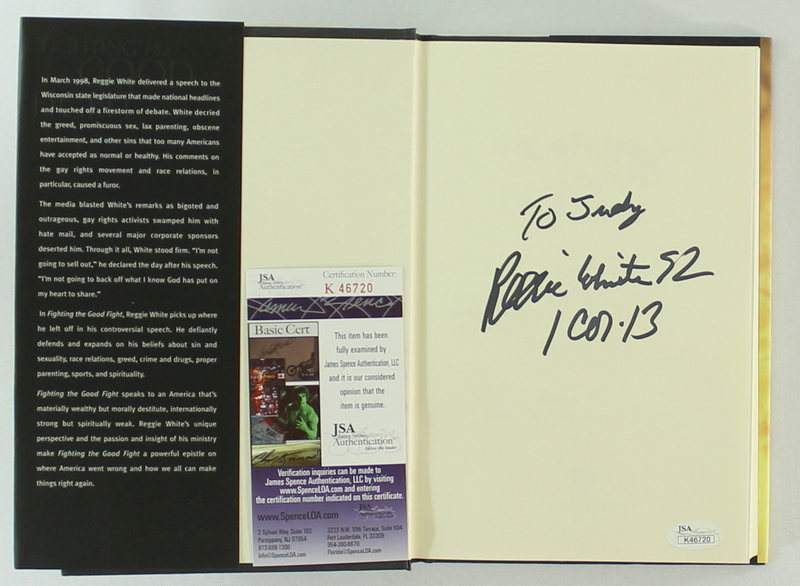 In March 1998, Reggie White delivered a speech to the
Wisconsin state legislature that made national headlines
and touched off a firestorm of debate. White decried
the greed, promiscuous sex, lax parenting, obscene
entertainment, and other sins that too many Americans
have accepted as normal or healthy. His comments on
the gay rights movement and race relations, in
particular, caused a furor.
The media blasted White's remarks as bigoted and
outrageous, gay rights activists swamped him with
hate mail, and several major corporate sponsors
deserted him. Through it all, White stood firm. "I'm not
going to sell out," he declared the day after his speech.
"I'm not going to back off what I know God has put on
my heart to share."
In Fighting the Good Fight, Reggie White picks up where
he left off in his controversial speech. He defiantly
defends and expands on his beliefs about sin and
sexuality, race relations, greed, crime and drugs, proper
parenting, sports, and spirituality.
Fighting the Good Fight speaks to an America that's
materially wealthy but morally destitute, internationally
strong but spiritually weak. Reggie White's unique
perspective and the passion and insight of his ministry
make Fighting the Good Fight a powerful epistle on
where America went wrong and how we all can make
things right again.
JSA
Authentication
Certification Number:
K 46720
James Spency
Basic Cert
This item has been
fully examined by
James Spence Authentication, LLC
and it is our considered
opinion that the
item is genuine.
JSA
James Spence
Authentication
Verification inquiries can be made to
James Spence Authentication, LLC by visiting
www.SpenceLOA.com and entering
the certification number indicated on this certificate.
www.SpenceLOA.com
2 Sylvan Way, Suite 102
Parsippany, NJ 07054
973-898-1300
Info@SpenceLOA.com
3223 N.W. 10th Terrace, Suite 60A
Fort Lauderdale, FL 33309
954-360-8670
Florida@SpenceLOA.com
To Judy
Reggie White 92
1 Cor. 13
JSA
K46720